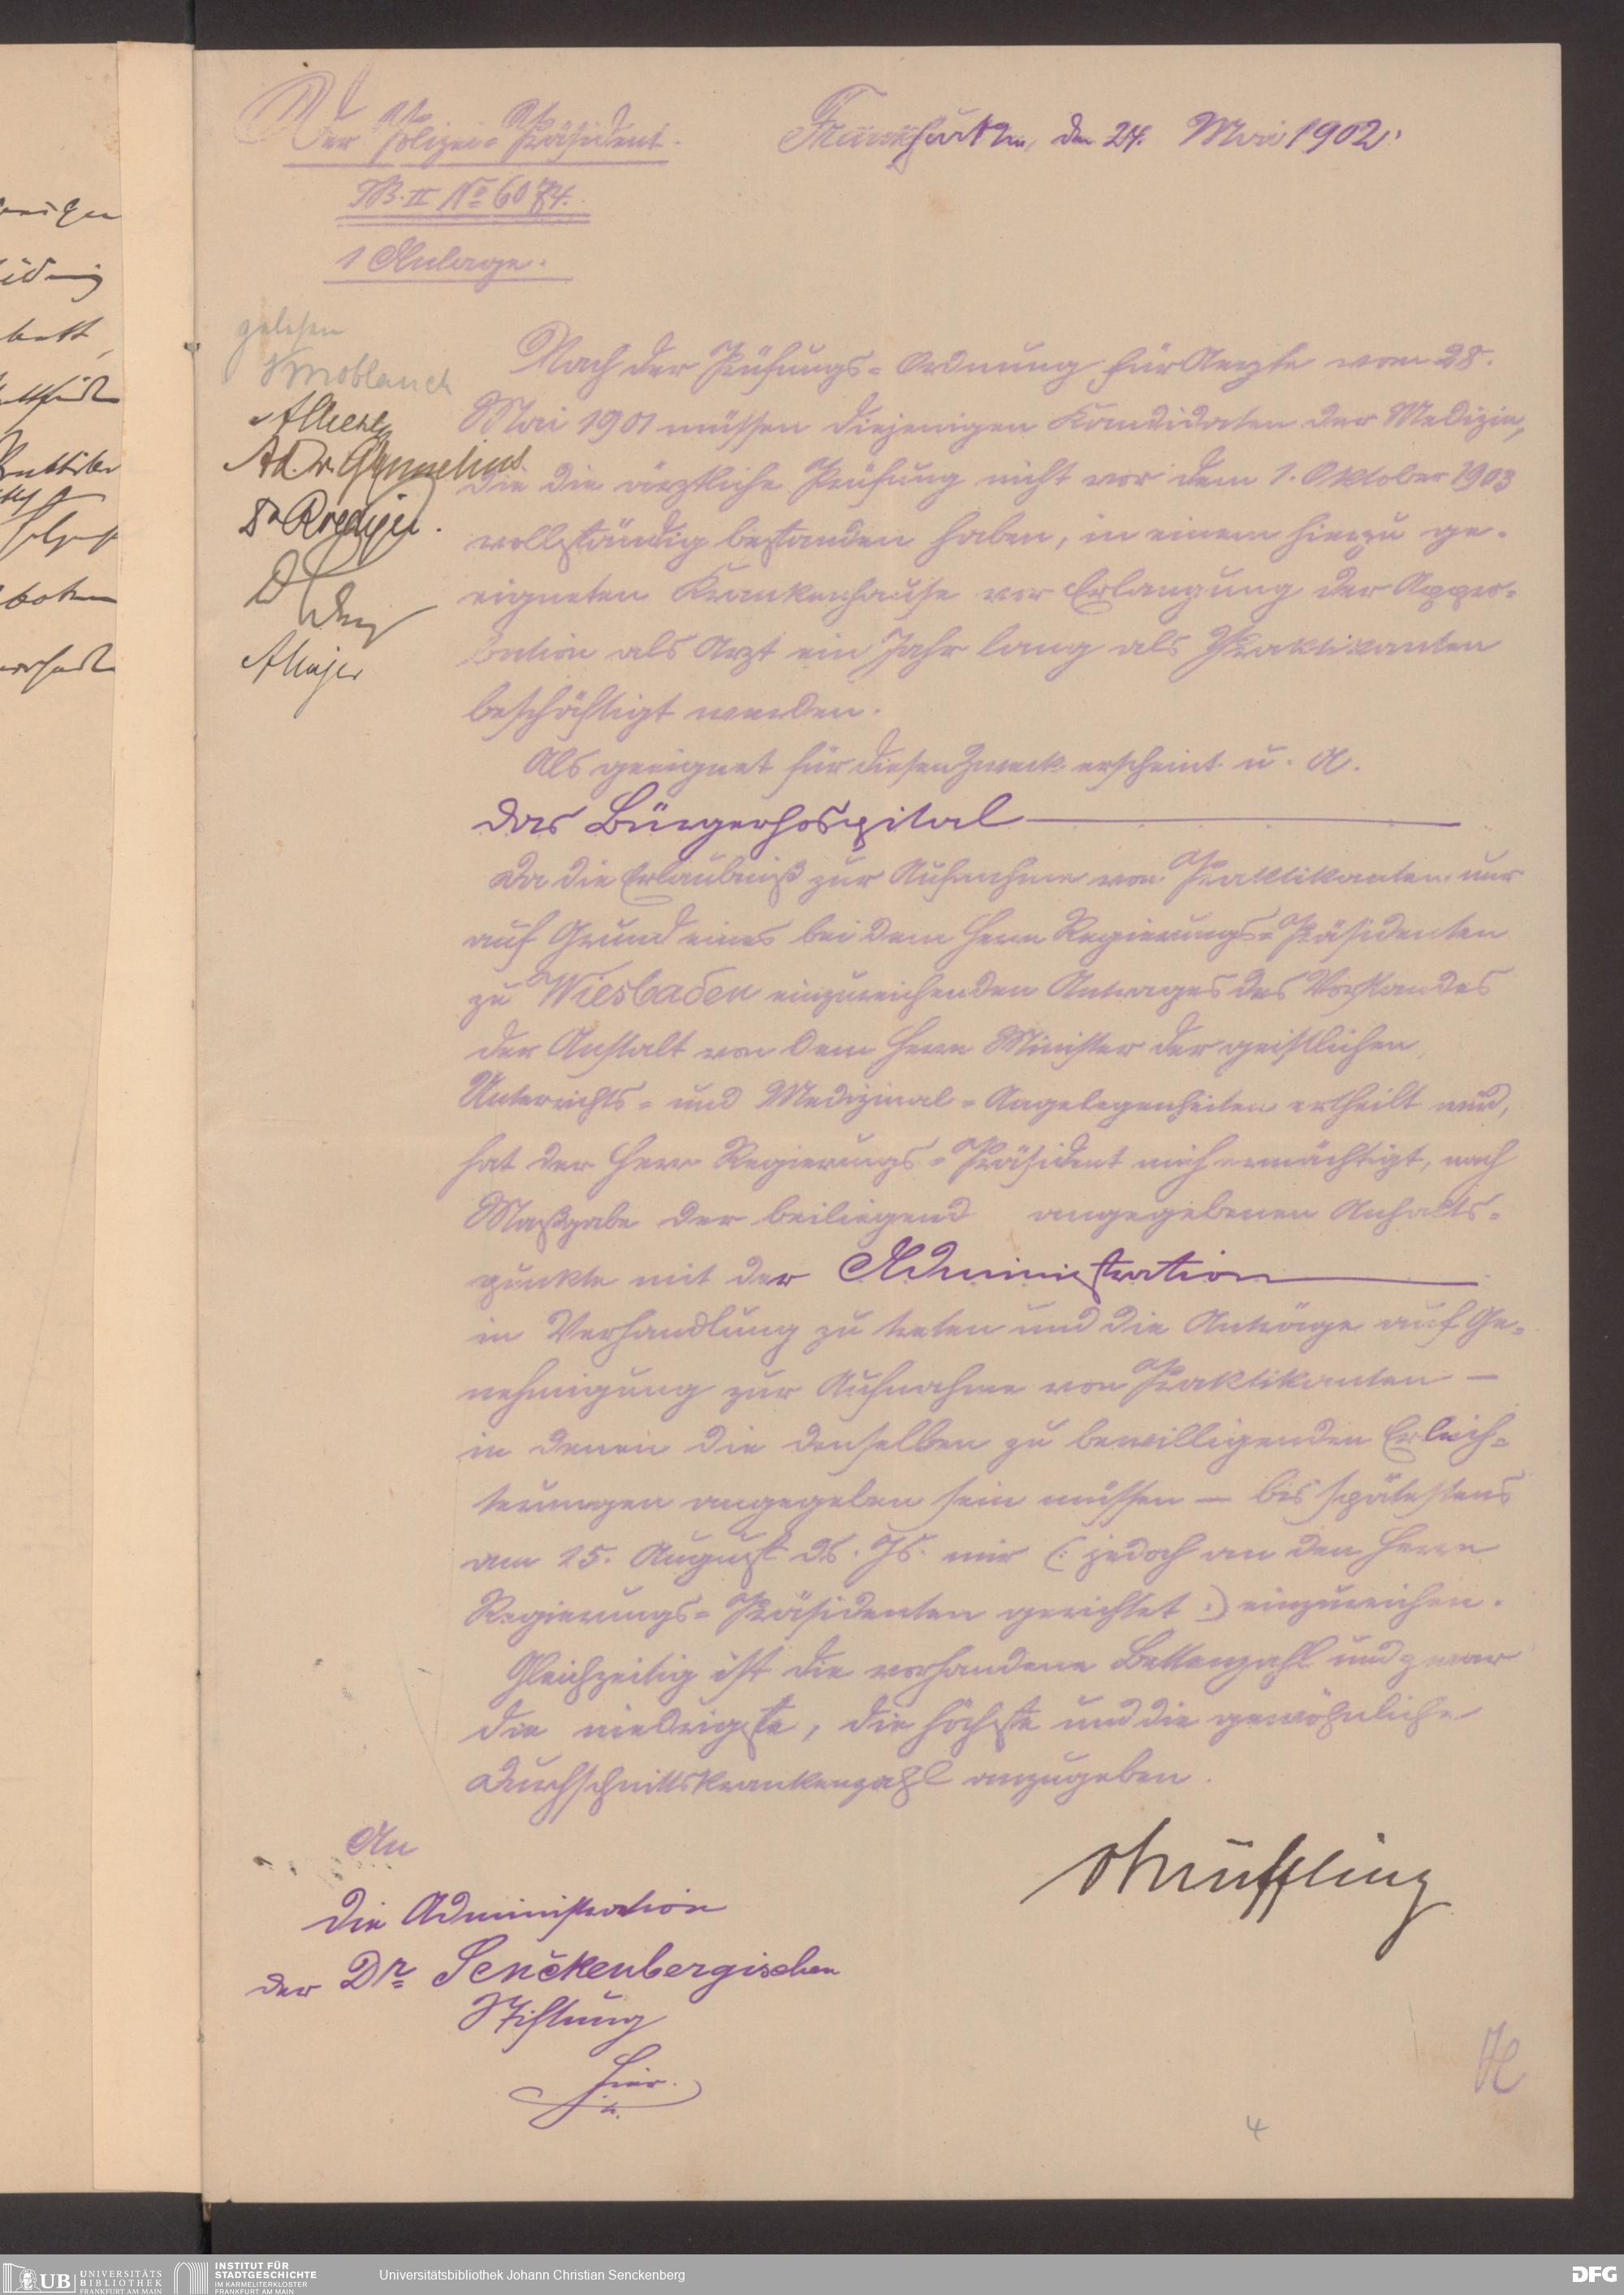 Der Polizei-Präsident.
Frankfurt a/M, den 24. Mai 1902.
P.B. II No 6074.
1 Anlage.
gelesen
Knoblauch
Dr Roediger.
A Majer
Nach der Prüfungs-Ordnung für Aerzte vom 28.
Mai 1901 müssen diejenigen Kandidaten der Medizin,
die die ärztliche Prüfung nicht vor dem 1. Oktober 1903
vollständig bestanden haben, in einem hierzu ge-
eigneten Krankenhause vor Erlangung der Appro-
bation als Arzt ein Jahr lang als Praktikanten
beschäftigt werden.
Als geeignet für diesen Zweck erscheint u. A.
das Bürgerhospital
Da die Erlaubniß zur Aufnahme von Praktikanten nur
auf Grund eines bei dem Herrn Regierungs-Präsidenten
zu Wiesbaden einzureichenden Antrages des Vorstandes
der Anstalt von dem Herrn Minister der geistlichen,
Unterrichts- und Medizinal-Angelegenheiten ertheilt wird,
hat der Herr Regierungs-Präsident mich ermächtigt, nach
Maßgabe der beiliegend angegebenen Anhalts-
punkte mit der Administration
in Verhandlung zu treten und die Anträge auf Ge-
nehmigung zur Aufnahme von Praktikanten —
in denen die denselben zu bewilligenden Erleich-
terungen angegeben sein müssen — bis spätestens
am 15. August ds. Js. mir (: jedoch an den Herrn
Regierungs-Präsidenten gerichtet :) einzureichen.
Gleichzeitig ist die vorhandene Bettenzahl und zwar
die niedrigste, die höchste und die gewöhnliche
Durchschnittskrankenzahl anzugeben.
An
die Administration
der Dr Senckenbergischen
Stiftung
hier.
vMüffling
4
UB UNIVERSITÄTS
BIBLIOTHEK
FRANKFURT AM MAIN
INSTITUT FÜR
STADTGESCHICHTE
IM KARMELITERKLOSTER
FRANKFURT AM MAIN
Universitätsbibliothek Johann Christian Senckenberg
DFG